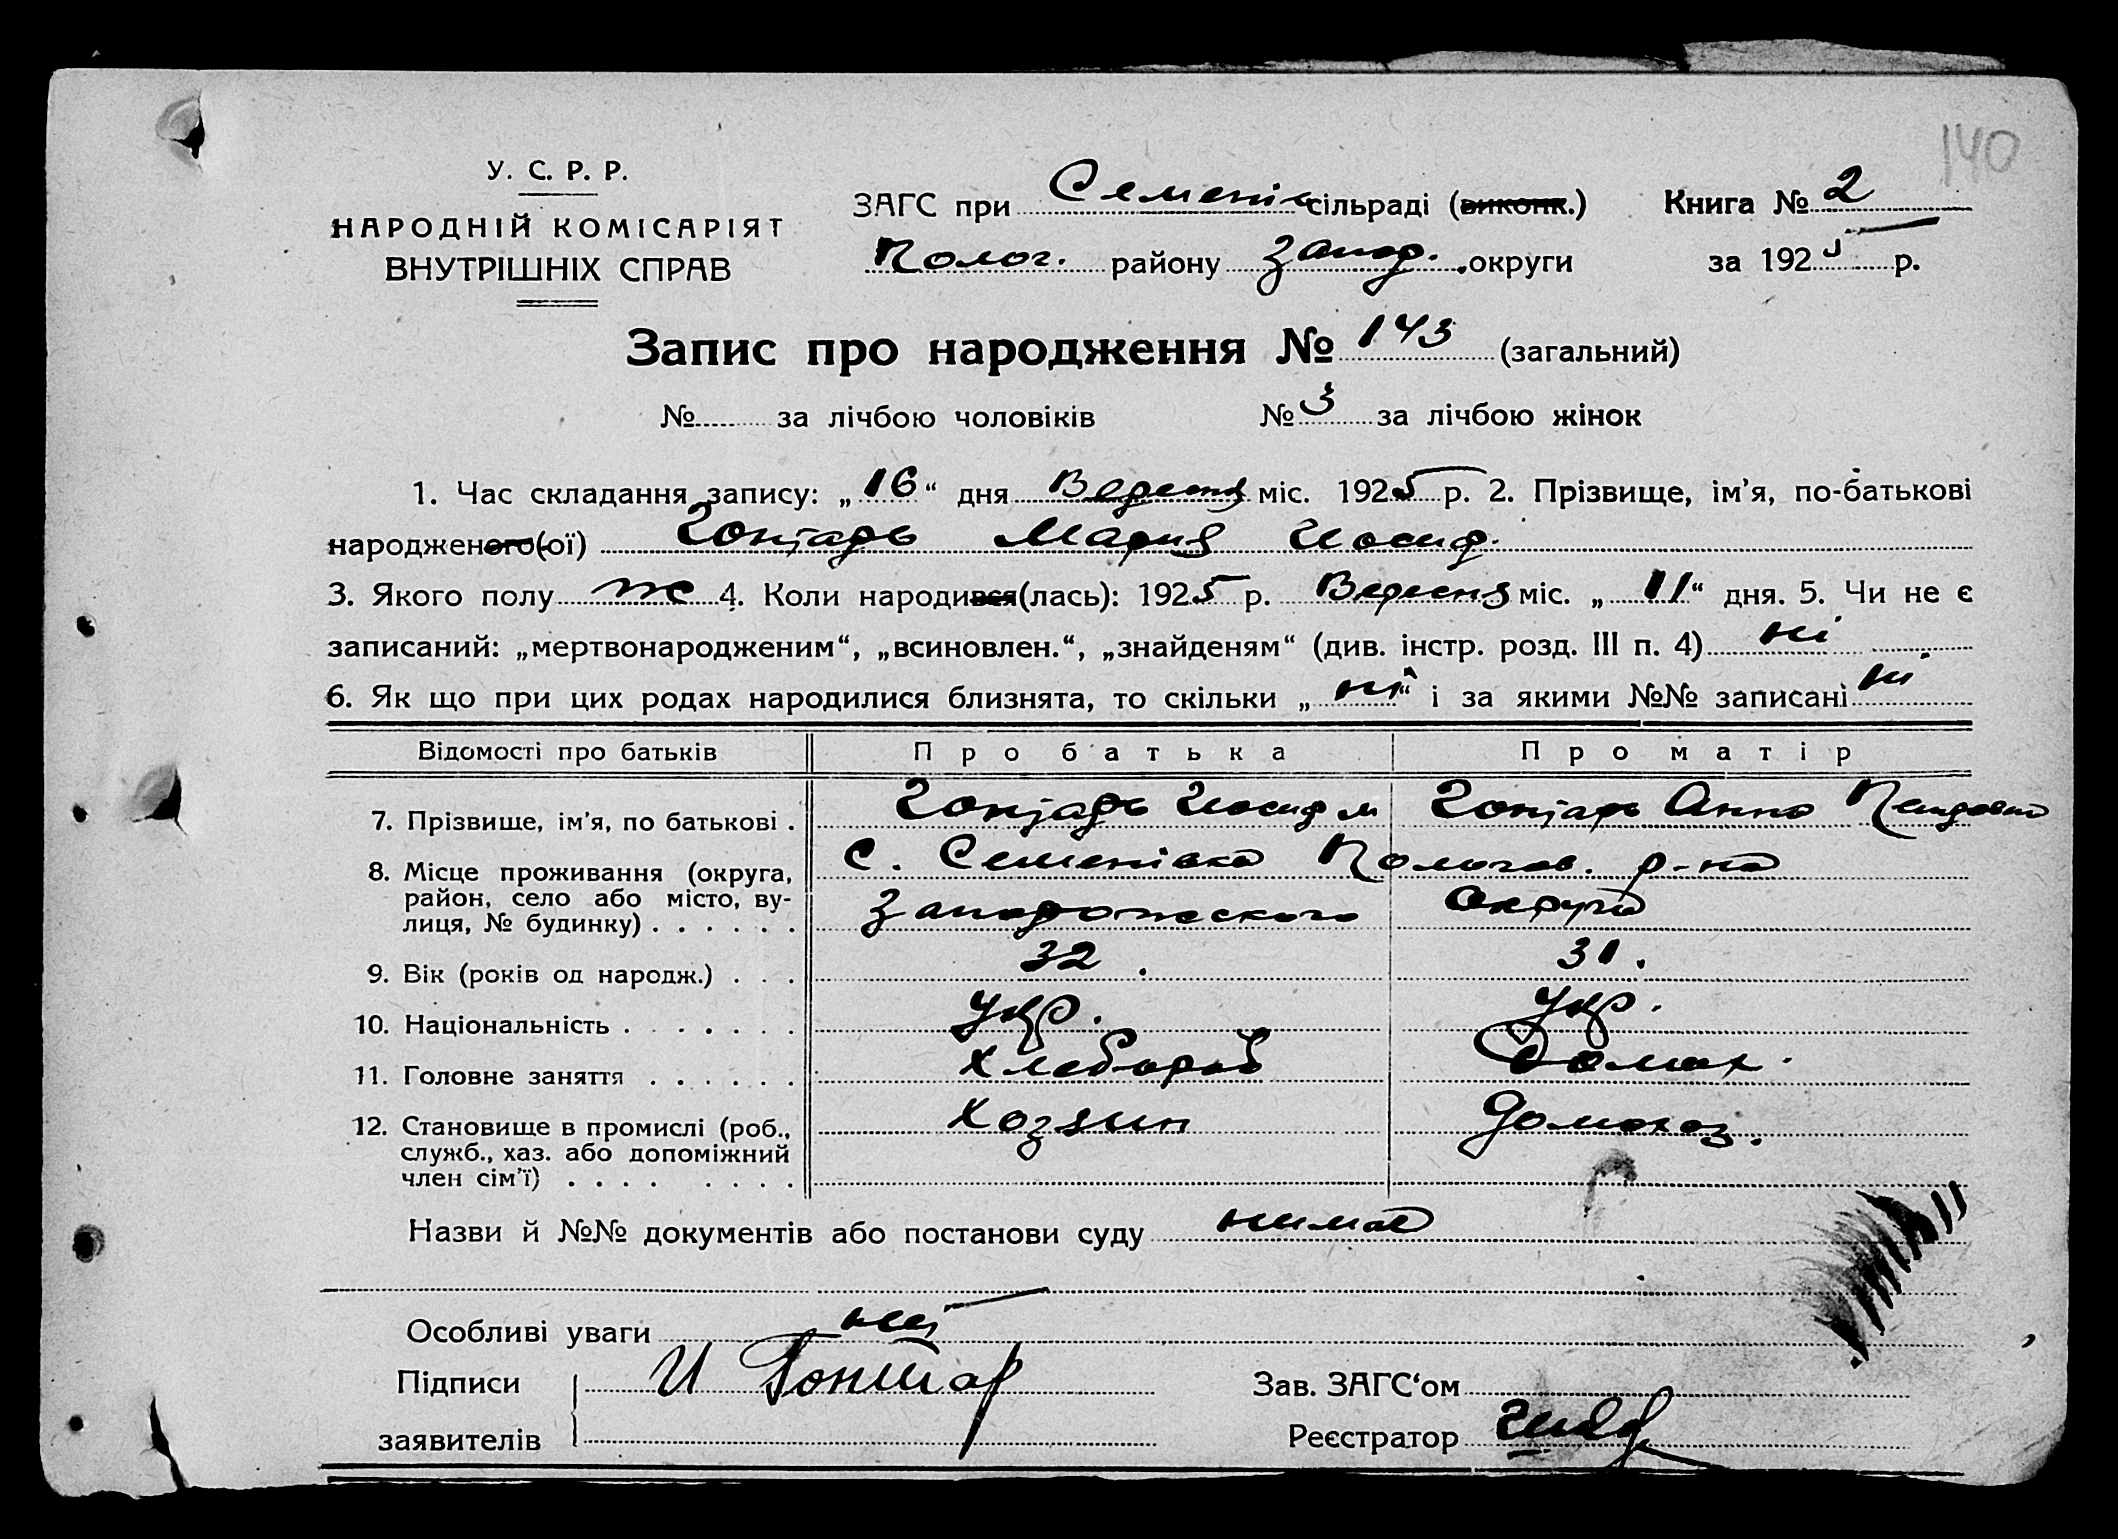 140
У. С. Р. Р.
НАРОДНІЙ КОМІСАРІЯТ
ВНУТРІШНІХ СПРАВ
ЗАГС при Семенів сільраді (виконк.) Книга № 2
Полог. району Запор. округи за 1925 р.
Запис про народження № 143 (загальний)
№ за лічбою чоловіків № 3 за лічбою жінок
1. Час складання запису: „16“ дня Вересня міс. 1925 р. 2. Прізвище, ім’я, по-батькові
народженого(-ої) Гонтарь Мария Иосиф.
3. Якого полу ж 4. Коли народився(лась): 1925 р. Вересня міс. „11“ дня. 5. Чи не є
записаний: „мертвонародженим“, „всиновлен.“, „знайденям“ (див. інстр. розд. III п. 4) ні
6. Як що при цих родах народилися близнята, то скільки „ні“ і за якими №№ записані ні
Відомості про батьків Про батька Про матір
7. Прізвище, ім’я, по батькові . Гонтарь Иосиф м Гонтарь Анна
8. Місце проживання (округа, район, село або місто, вулиця, № будинку) . . . . . . с. Семенівка Пологов. р-на
Запорожского округа
9. Вік (років од народж.) . . . 32. 31.
10. Національність . . . . . . . Укр. Укр.
11. Головне заняття . . . . . . Хлебороб Домах.
12. Становище в промислі (роб., служб., хаз. або допоміжний член сім’ї) . . . . . . . . Хозяин Домохоз.
Назви й №№ документів або постанови суду нимаэ
Особливі уваги нет
Підписи И Гонтар Зав. ЗАГС‘ом
заявителів Реєстратор